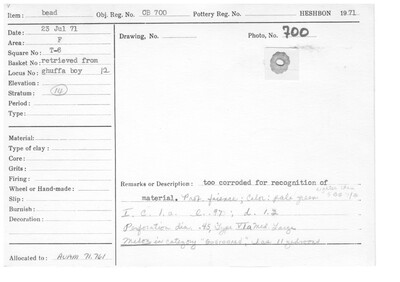 Item: bead Obj. Reg. No. OB 700 Pottery Reg. No. HESHBON 1971
Date: 23 Jul 71
Area: F
Square No: T-6
Basket No: retrieved from
Locus No: ghuffa boy 12
Elevation:
Stratum: 14
Period:
Type:
Drawing, No. Photo, No. 700
Material:
Type of clay:
Core:
Grits:
Firing:
Wheel or Hand-made:
Slip:
Burnish:
Decoration:
Remarks or Description: too corroded for recognition of
material. faience; Color: pale green
Perforation dia. Type Large
in category
Allocated to: AUAM 71.761